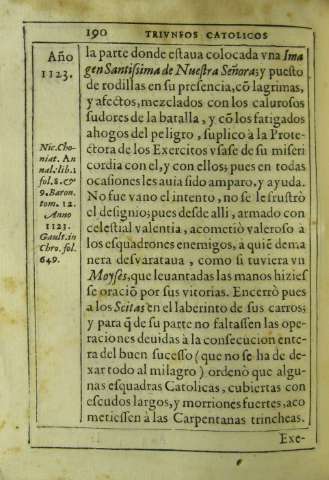 190 TRIVNFOS CATOLICOS
Año
1123.
la parte donde estaua colocada vna Ima
gen Santissima de Nuestra Señora; y puesto
de rodillas en su presencia, cō lagrimas,
y afectos, mezclados con los calurosos
sudores de la batalla, y cō los fatigados
ahogos del peligro, suplico à la Prote-
ctora de los Exercitos vsase de su miseri
cordia con el, y con ellos; pues en todas
ocasiones les auia sido amparo, y ayuda.
No fue vano el intento, no se le frustrò
el designio; pues desde alli, armado con
celestial valentia, acometiò valeroso à
los esquadrones enemigos, à quiē dema
nera desvarataua, como si tuviera vn
Moyses, que leuantadas las manos hizies
se oraciō por sus vitorias. Encerrò pues
a los Scitas en el laberinto de sus carros;
y para q̄ de su parte no faltassen las ope-
raciones deuidas à la consecucion ente-
ra del buen sucesso (que no se ha de de-
xar todo al milagro) ordenò que algu-
nas esquadras Catolicas, cubiertas con
escudos largos, y morriones fuertes, aco
metiessen à las Carpentanas trincheas.
Exe-
Nic. Cho-
niat. An
nal. lib. 1
fol. 8. &
9. Baron.
tom. 12.
Anno
1123.
Gault. in
Chro. fol.
649.